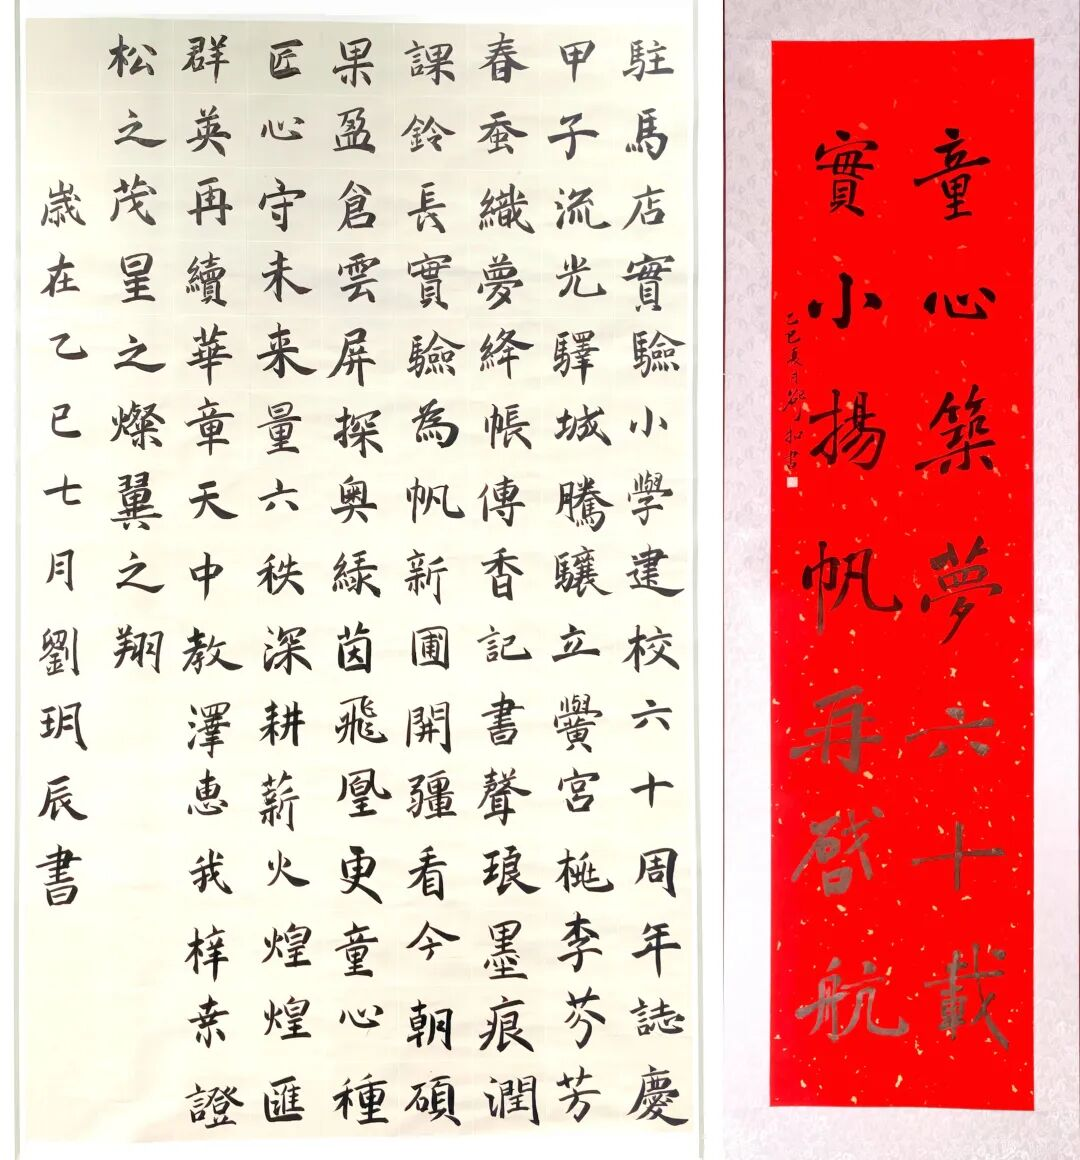 駐馬店實驗小學建校六十周年誌慶
甲子流光驛城騰驤立黌宮桃李芬芳
春蚕織夢絳帳傳香記書聲琅墨痕潤
課鈴長實驗為帆新圃開疆看今朝碩
果盈倉雲屏探奥緑茵飛凰更童心種
匠心守未来量六秩深耕薪火煌煌匯
群英再續華章天中教澤惠我梓桒證
松之茂星之燦翼之翔
歲在乙巳七月劉玥辰書
童心築夢六十載
實小揚帆再啓航
乙巳夏月 和書